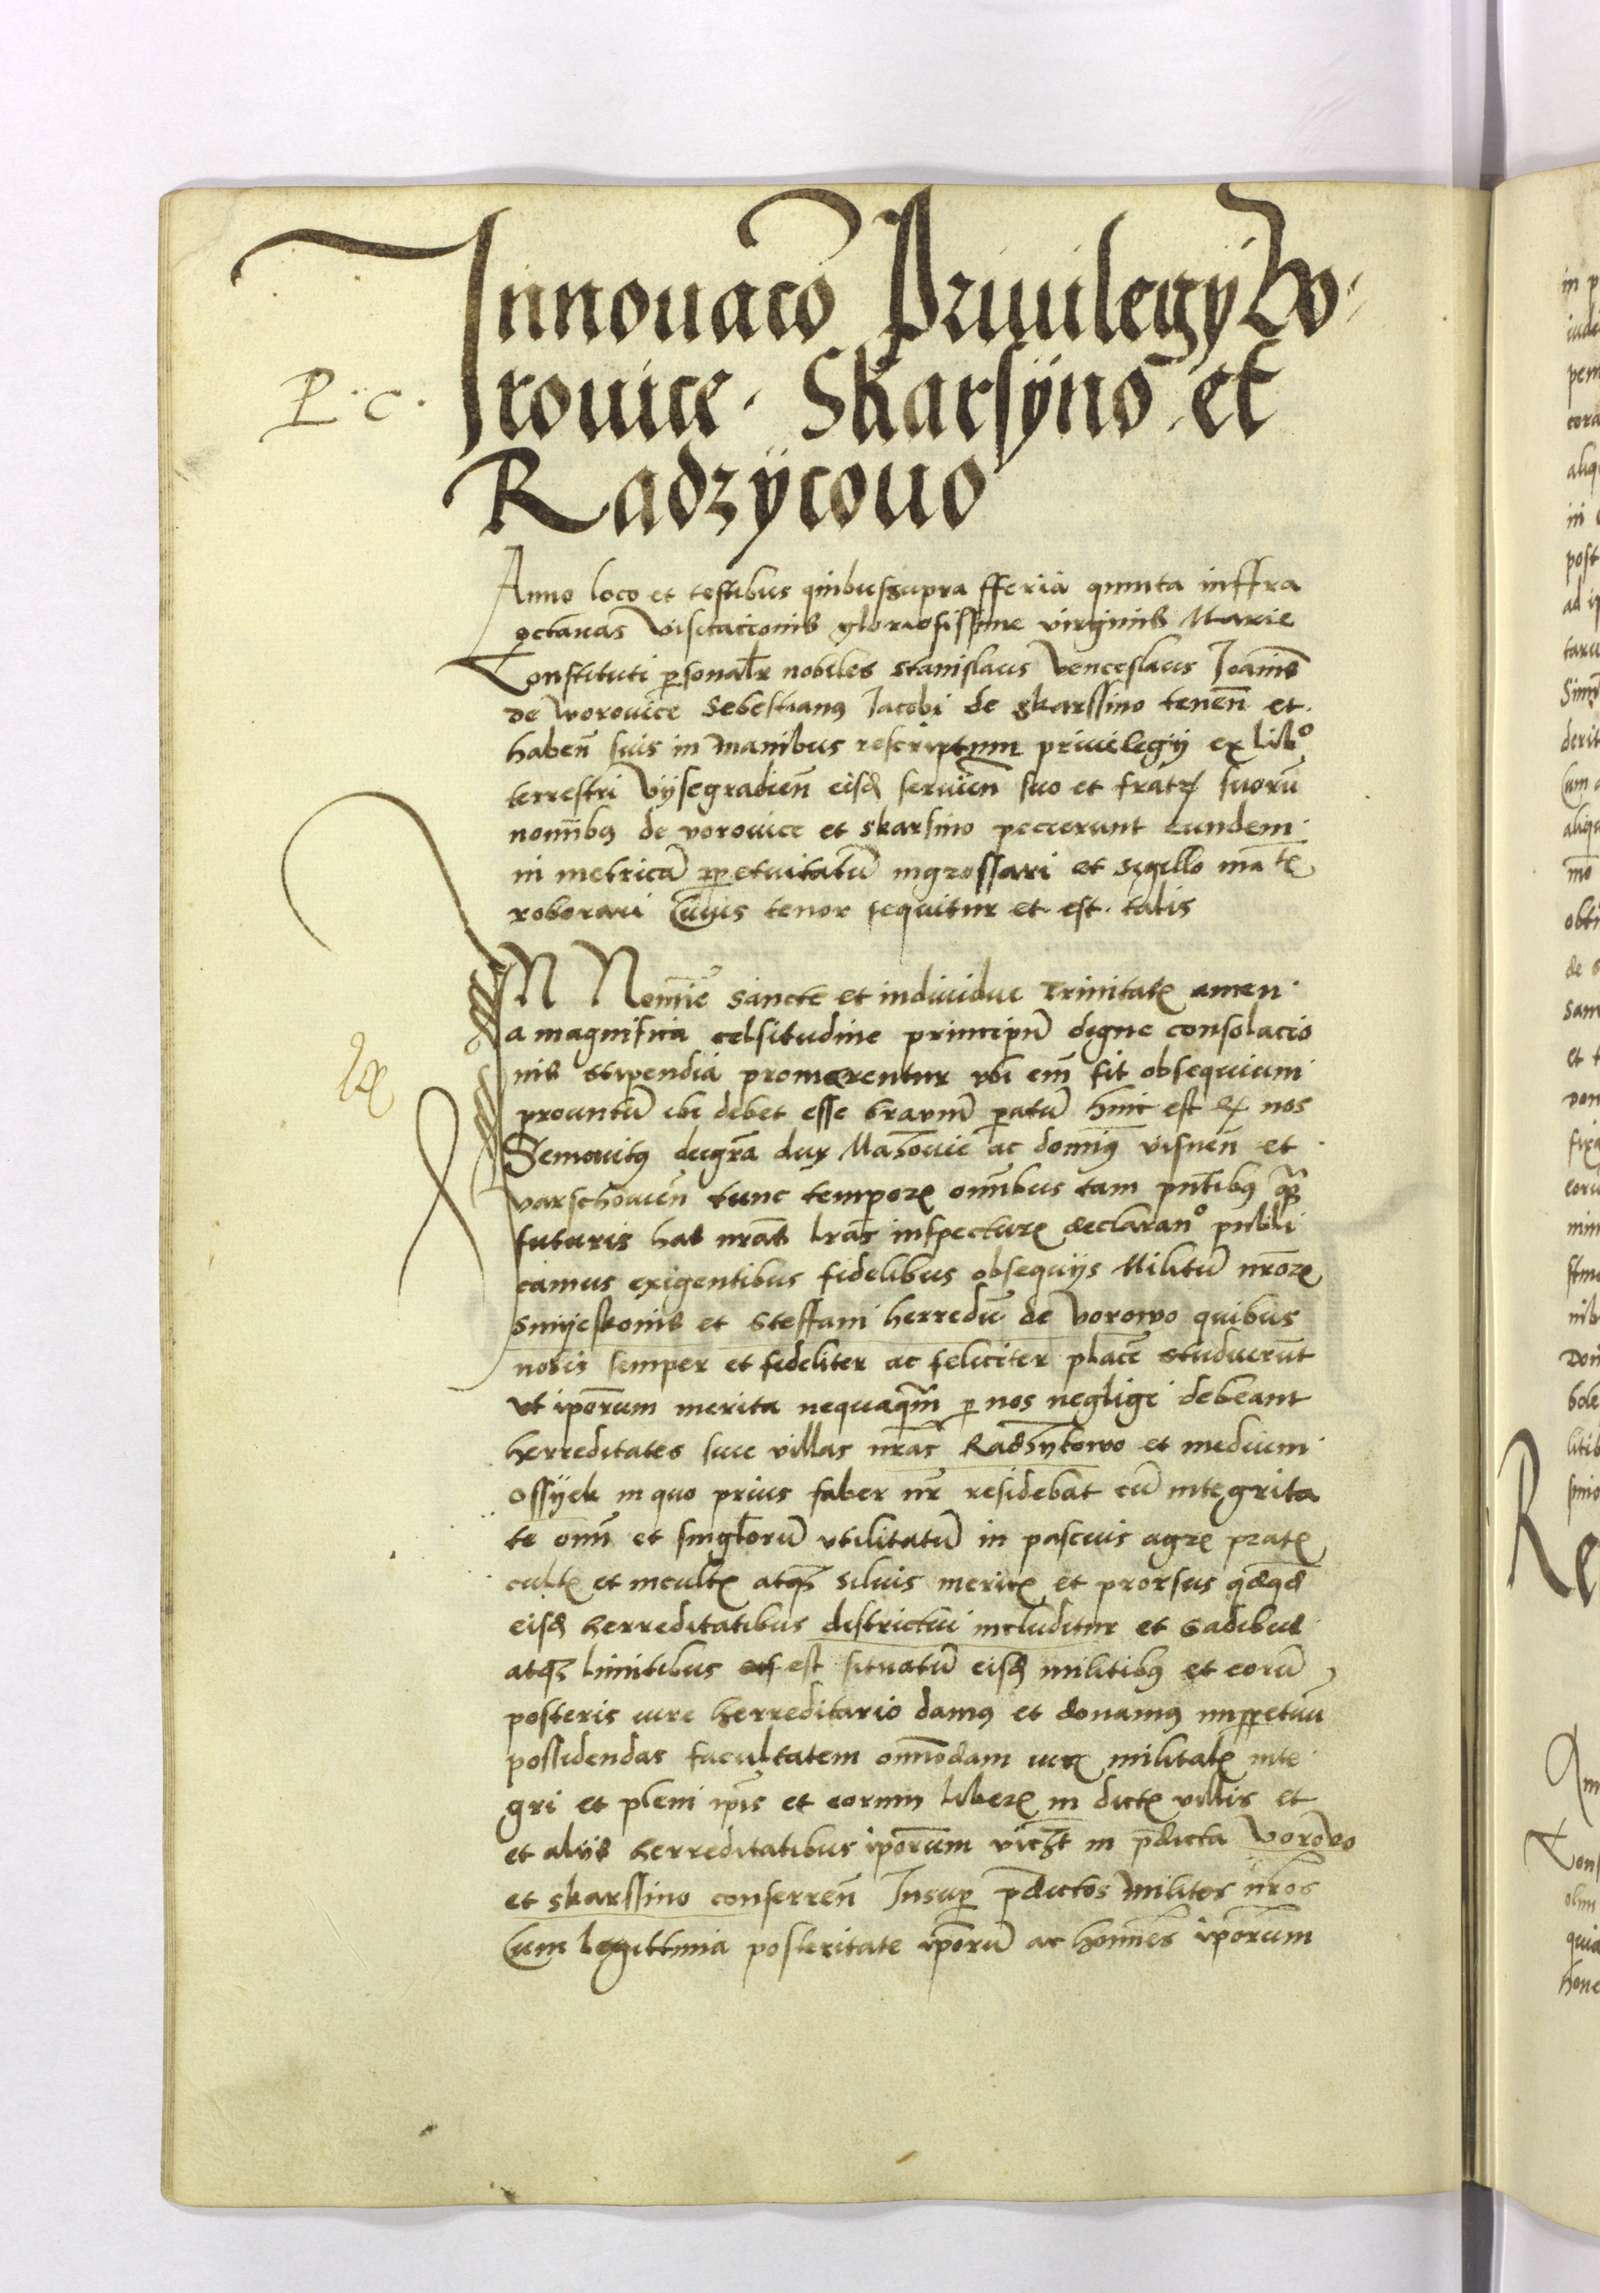 Innouacō Priuilegÿ Wo
rouice · Skarsÿno et
Radzÿcouo
P. c.
Anno loco et testibus quibus supra fferia quinta inffra
octauas Visitacionis gloriosissime virginis Marie
Constituti personalr nobiles Stanislaus Venceslaus Joanis
de Worouice Sebestianus Jacobi de Skarssino tenen̄ et
haben̄ suis in manibus rescriptum priuilegij ex libᵒ
terrestri Vÿsegradien̄ eisd seruien̄ suo et fratrꝫ suorū
nomībus de vorouice et skarsino pecierunt eundem
in metricā ppetuitatū ingrossari et sigillo
roborari Cuius tenor sequitur et est talis
IN Nomīe sancte et indiuidue Trinitatꝭ amen
a magnifica celsitudine principū digne consolacio
nis stipendia promerentur vbi em̄ fit obsequium
promtū ibi debet esse bravm̄ patū hinc est nos
Semouitus deigrā dux Masouie ac domīus visnen̄ et
varschouien̄ tunc temporꝭ omībus tam pn̄tibus q̄
futuris has nrās lrās inspecturꝭ declaranᵒ publi
camus exigentibus fidelibus obsequijs Militū nrōrꝫ
Smijeskonis et Steffani herredū de Vorowo quibus
nobis semper et fideliter ac feliciter placē studuerūt
vt ipōrum merita nequaqm̄ p nos negligi debeant
herreditates siue villas nrās Radzÿkowo et medium
Ossÿek in quo prius faber nr̄ residebat cū integrita
te om̄ et singlorū vtilitatū in pascuis agrꝭ pratꝭ
cultꝭ et incultꝭ atqꝫ siluis mericꝭ et prorsus qdqd
eisd herreditatibus districtui includitur et Gadibus
atqꝫ limitibus est situatū eisd militibus et eorū
posteris iure herreditario damus et donamus imppetuū
possidendas facultatem om̄odam iurꝭ militalꝭ inte
gri et pleni ipīs et eorum liberꝭ in dictꝭ villis et
et alijs herreditatibus ipōrum vicꝫt in p̄dicta Vorowo
et skarssino conferren̄ Insup p̄dictos milites nr̄os
Cum legittima posteritate ipōrū ac homīes ipōrum